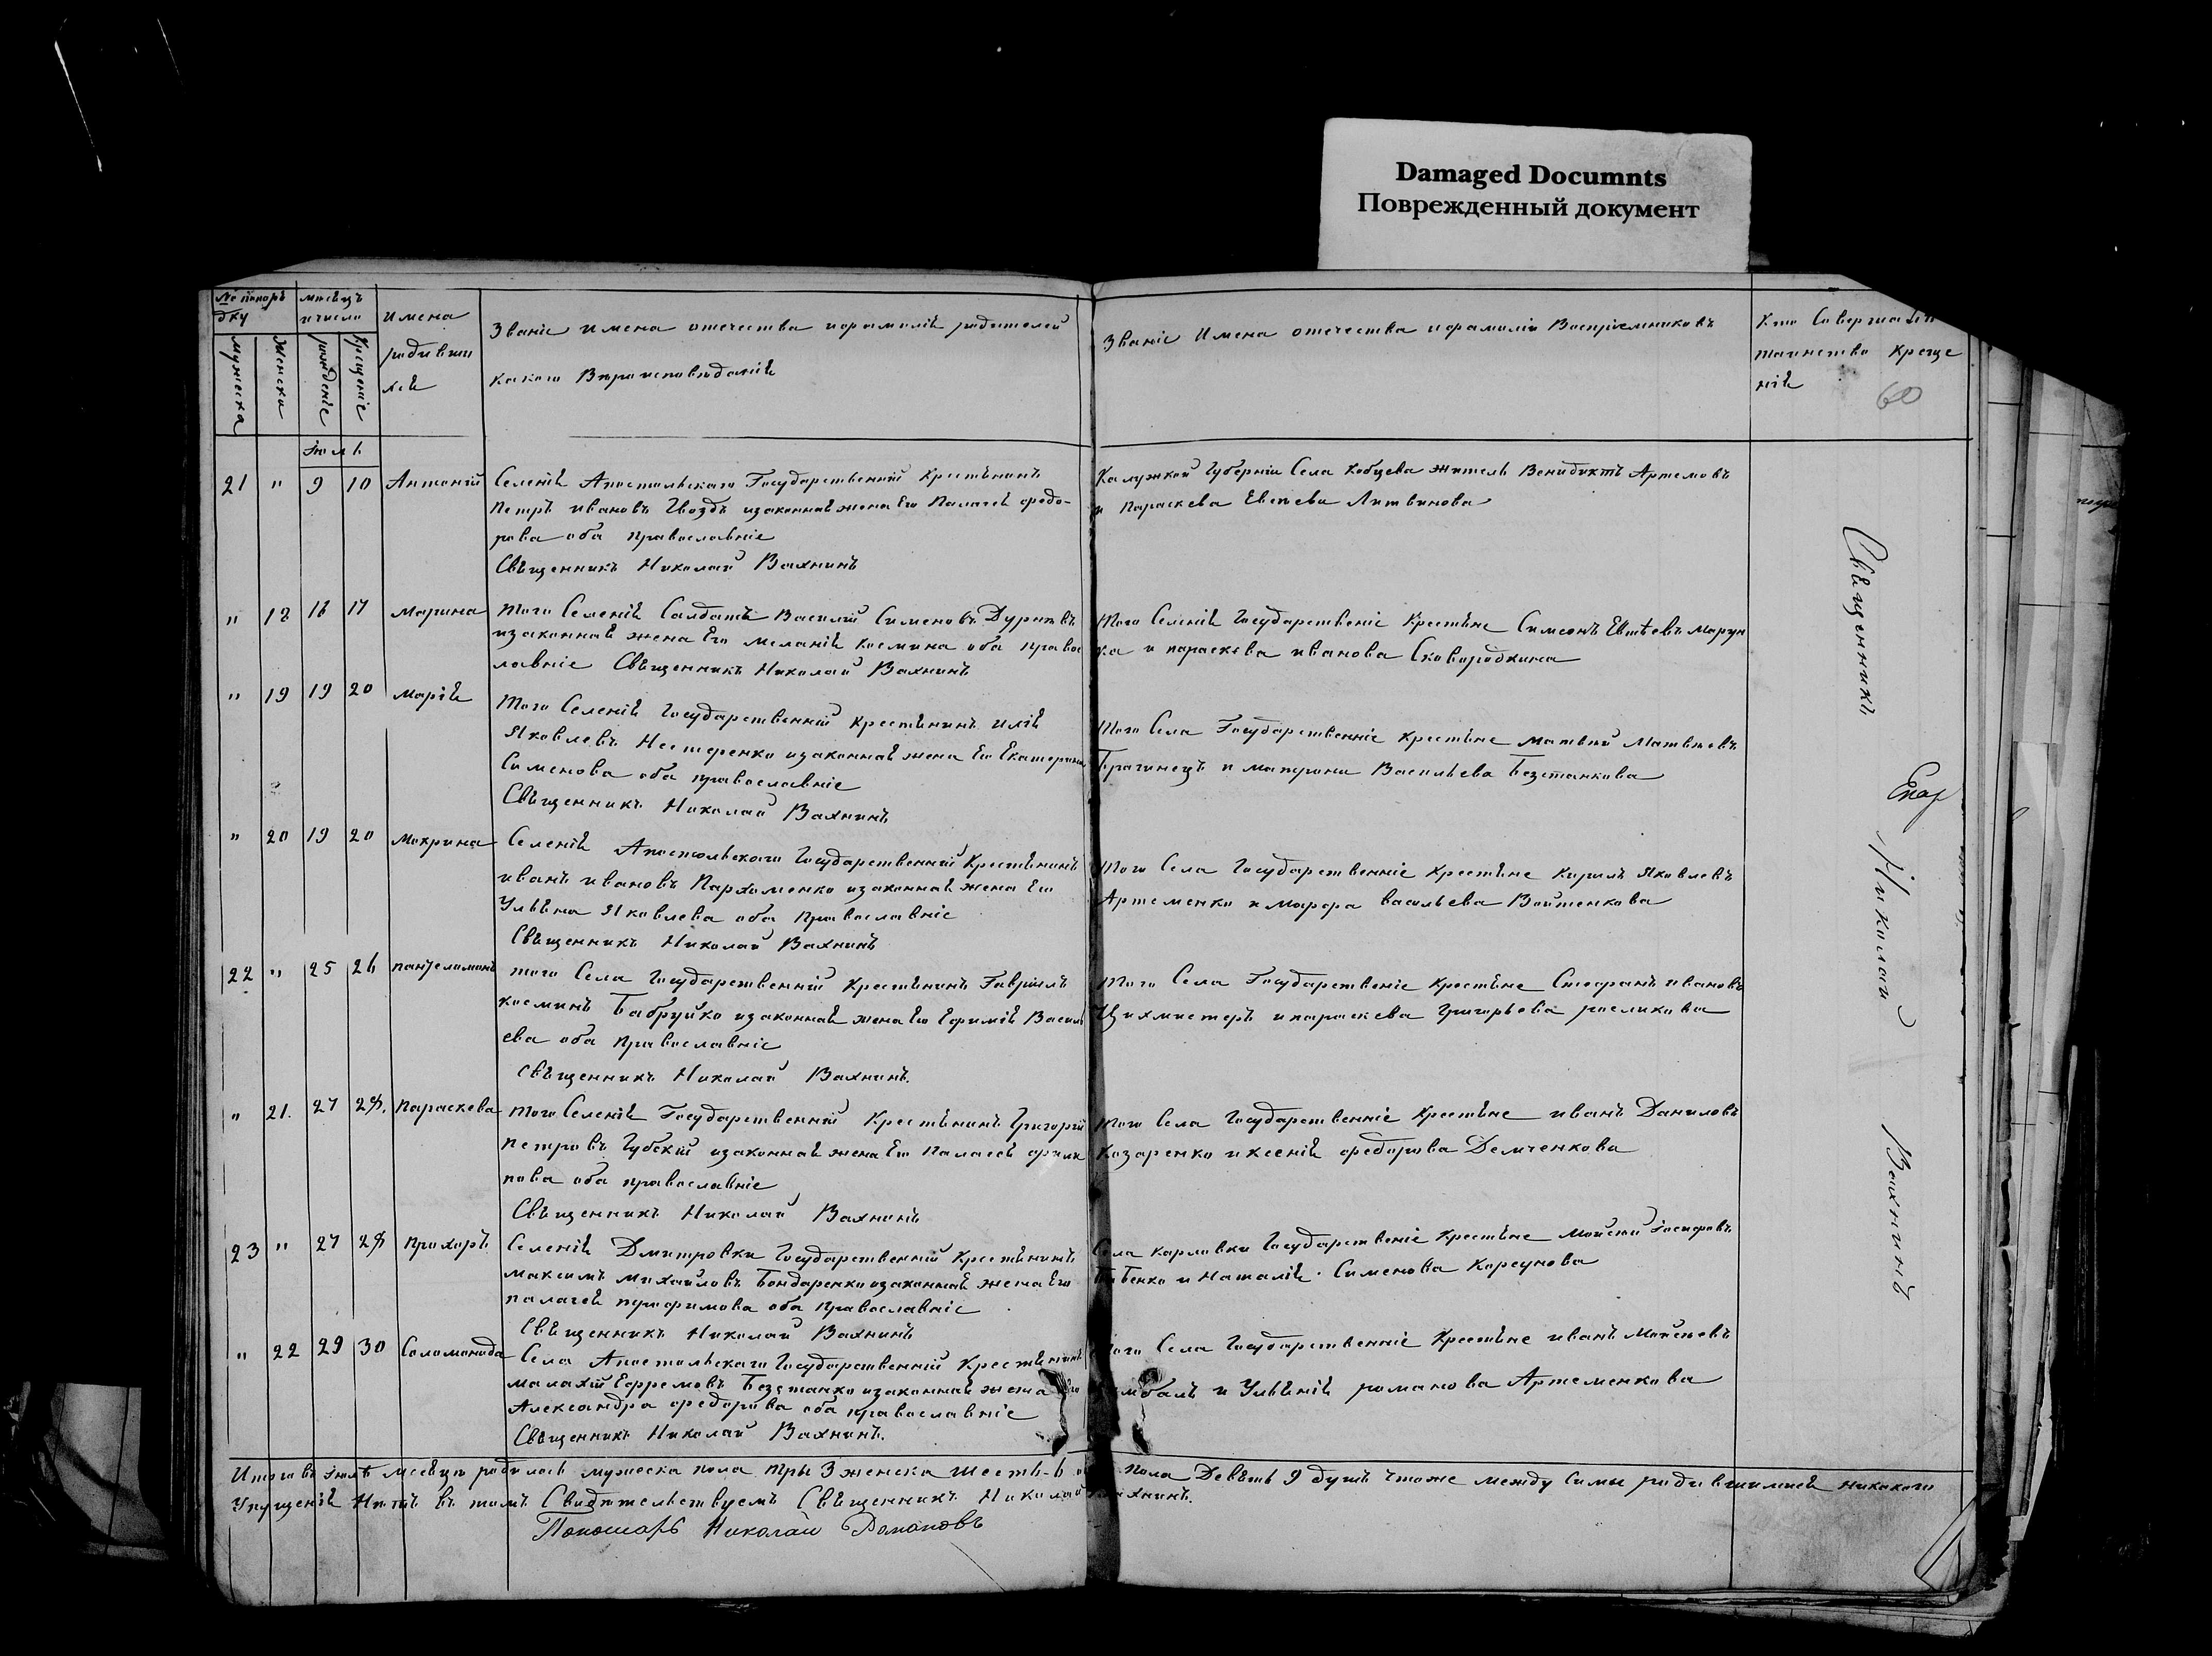 Damaged Documnts
Поврежденный документ
№ попоря
дку
мѣсяцъ
и число
Имена
родивши
хся
Званіе имена отечества и фамилія родителей
какого Вѣроисповѣданія
Званіе Имена отечества и фамилія Воспріемниковъ
Кто Совершалъ
таинство Креще
нія
60
мужеска
женска
рожденіе
Крещеніе
Іюль
21 " 9 10 Антоній
Селенія Апостольскаго Государственный Крестянинъ
Петръ ивановъ Гвоздъ изаконная жена Его Палагея федо-
рова оба православніе
Священникъ Николай Вахнинъ
Калужкой Губерніи Села Кобцева житель Венидиктъ Артемовъ
и Параскева Евсѣева Литвинова
" 18 16 17 Марина
того Селенія Салдатъ Василій Сименовъ
изаконная жена Его меланія космина оба право
славніе Священникъ Николай Вахнинъ
того Селенія Государственіе Крестяне Симеонъ Евсѣевъ
ка и параскева иванова Сковородкина
" 19 19 20 Марія
того Селенія Государственній крестянинъ илія
Яковлевъ Нестеренко изаконная жена Его Екатерина
Сименова оба православніе
Священникъ Николай Вахнинъ
того Села Государственніе крестяне матвѣй Матвѣевъ
Брагинецъ и матрона Васильева Безстанкова
" 20 19 20 Макрина
Селенія Апостольскаго Государственній Крестянинъ
иванъ ивановъ Пархоменко изаконная жена Его
Ульяна Яковлева оба Православніе
Священникъ Николай Вахнинъ
того Села Государственніе крестяне Кирилъ Яковлевъ
Артеменко и Марфа васильева Войтенкова
22 " 25 26 пантелимонъ
того Села Государственній Крестянинъ Гавріилъ
косминъ Бабруйко изаконная жена Его Ефимія Васил
ева оба Православніе
Священникъ Николай Вахнинъ.
того Села Государственіе крестяне Стефанъ ивановъ
Цихмистеръ и параскева Григорьева рослякова
" 21. 27 28. Параскева
того Селенія Государственній Крестянинъ Григорій
петровъ Губскій изаконная жена Его Палагея фили
пова оба православніе
Священникъ Николай Вахнинъ
того Села Государственніе Крестяне иванъ Даниловъ
Козаренко и ксенія федорова Демченкова
23 " 27 28 прохоръ
Селенія Дмитровки Государственній Крестянинъ
максимъ михайловъ Бондаренко изаконная жена Его
палагея трофимова оба Православніе
Священникъ Николай Вахнинъ
Села карловки Государственіе Крестяне Мойсей Іосифовъ
и Наталія Сименова Корсунова
" 22 29 30 Соломонида
Села Апостольскаго Государственній Крестянинъ
малахій Ефремовъ Безстанко изаконная жена Его
Александра федорова оба православніе
Священникъ Николай Вахнинъ.
того Села Государственніе Крестяне иванъ Мойсѣевъ
и Ульянія романова Артеменкова
Священникъ
Николай
Вахнинъ
Итого въ Іюлѣ мѣсяцѣ родилось мужеска пола три 3 женска шесть-6 пола Девять 9 душъ Что же между Сими родившимися никакого
Упущенія Нѣтъ въ томъ Свидѣтельствуемъ Священникъ Николай Вахнинъ.
Пономарь Николай Романовъ